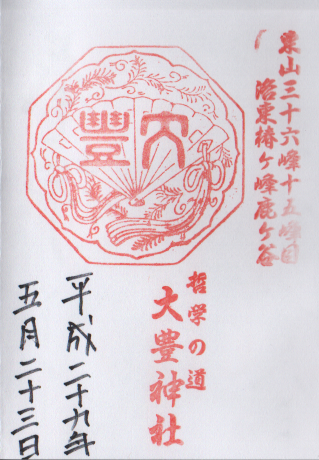 東山三十六峰十五峰目
洛東椿ヶ峰鹿ヶ谷
大豐
哲学の道
大豊神社
平成二十九年
五月二十三日